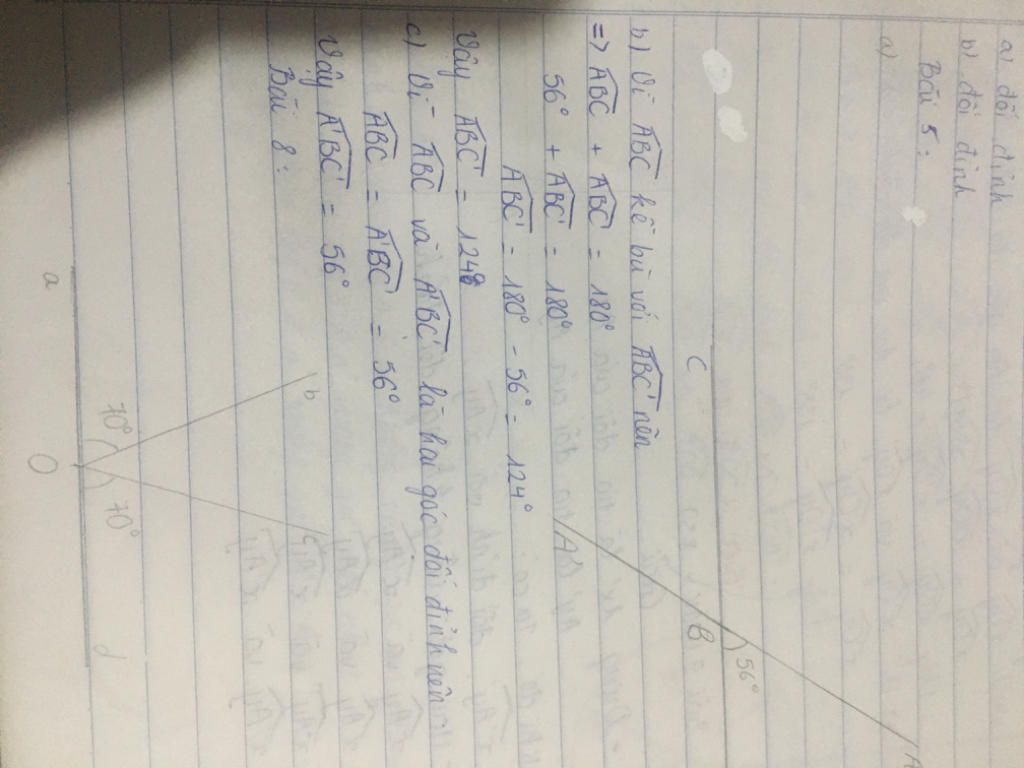 a) đối đỉnh
b) đối đỉnh
Bài 5:
a)
A
56°
C B
A'
b) Vì ABC kề bù với ABC' nên
=> ABC + ABC' = 180°
56° + ABC' = 180°
ABC' = 180° - 56° = 124°
Vậy ABC' = 124°
c) Vì ABC và A'BC' là hai góc đối đỉnh nên
ABC = A'BC' = 56°
Vậy A'BC' = 56°
Bài 8:
b c
70° 70°
a O d